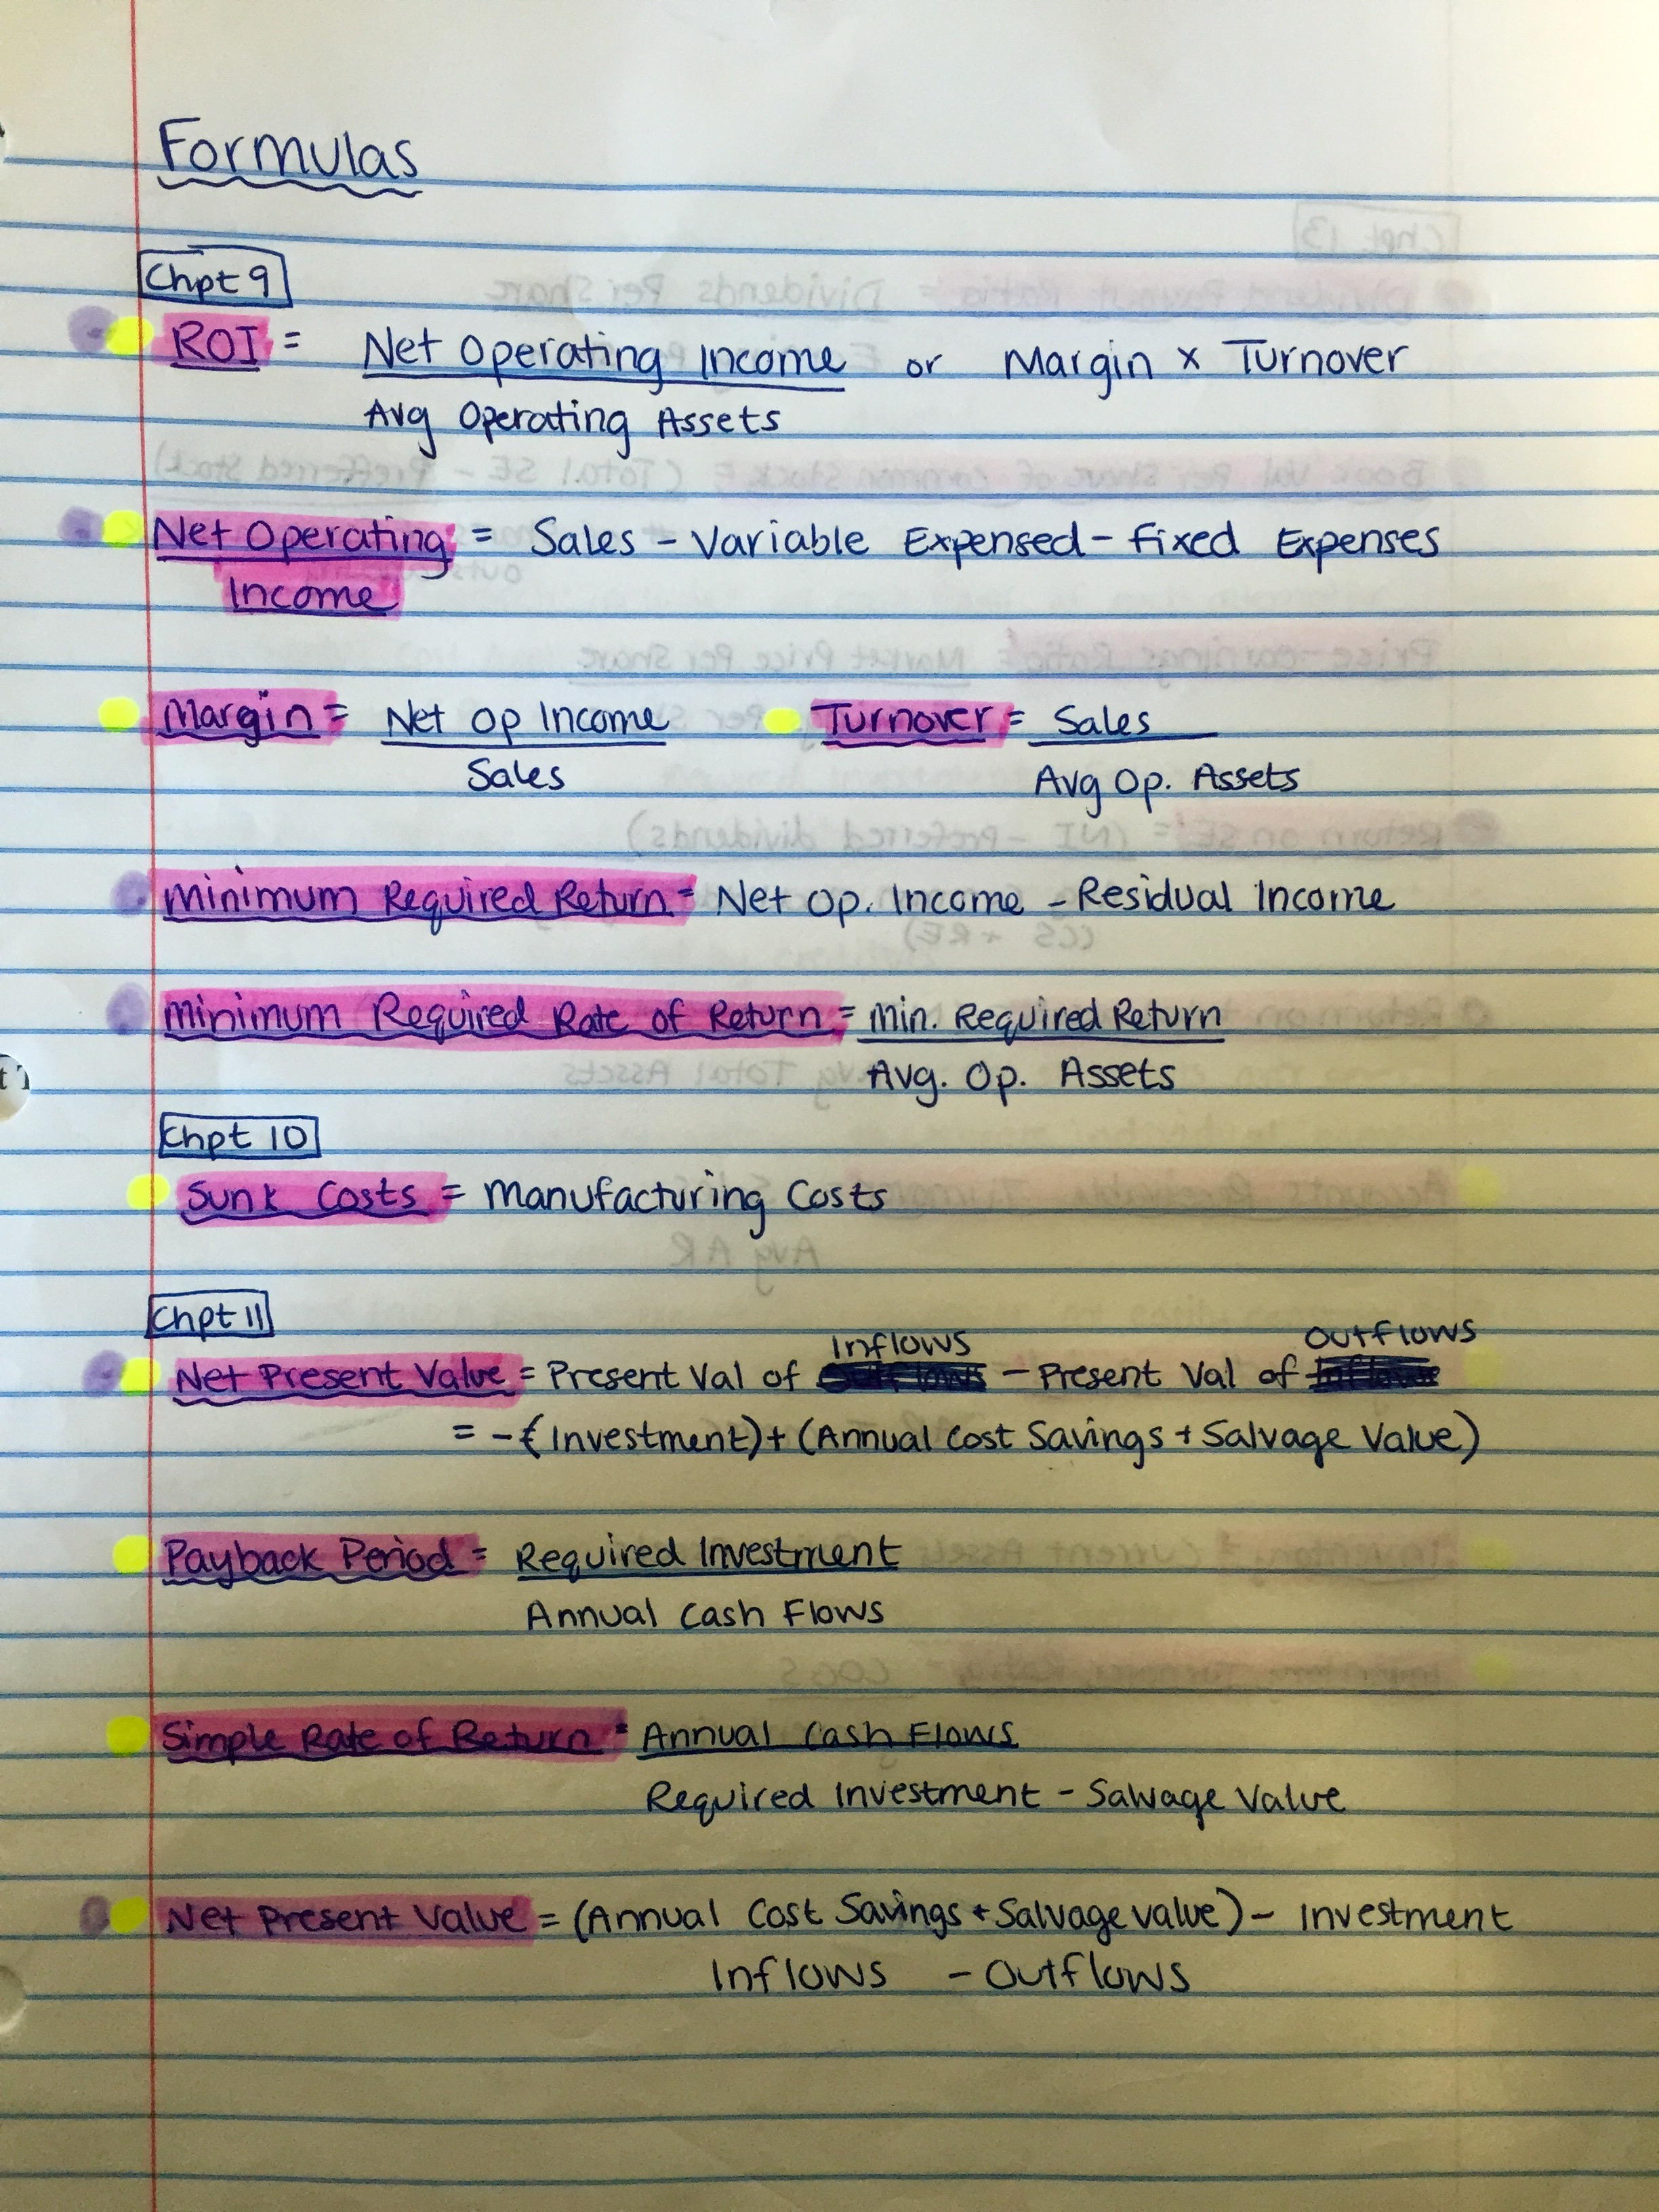 Formulas
Chpt 9
ROI = Net Operating Income or Margin x Turnover
Avg Operating Assets
Net Operating = Sales - Variable Expensed - Fixed Expenses
Income
Margin = Net Op Income Turnover = Sales
Sales Avg Op. Assets
Minimum Required Return = Net Op. Income - Residual Income
Minimum Required Rate of Return = Min. Required Return
Avg. Op. Assets
Chpt 10
Sunk Costs = Manufacturing Costs
Chpt 11
Inflows Outflows
Net Present Value = Present Val of - Present Val of
= -(Investment) + (Annual Cost Savings + Salvage Value)
Payback Period = Required Investment
Annual Cash Flows
Simple Rate of Return = Annual Cash Flows
Required Investment - Salvage Value
Net Present Value = (Annual Cost Savings + Salvage Value) - Investment
Inflows - Outflows